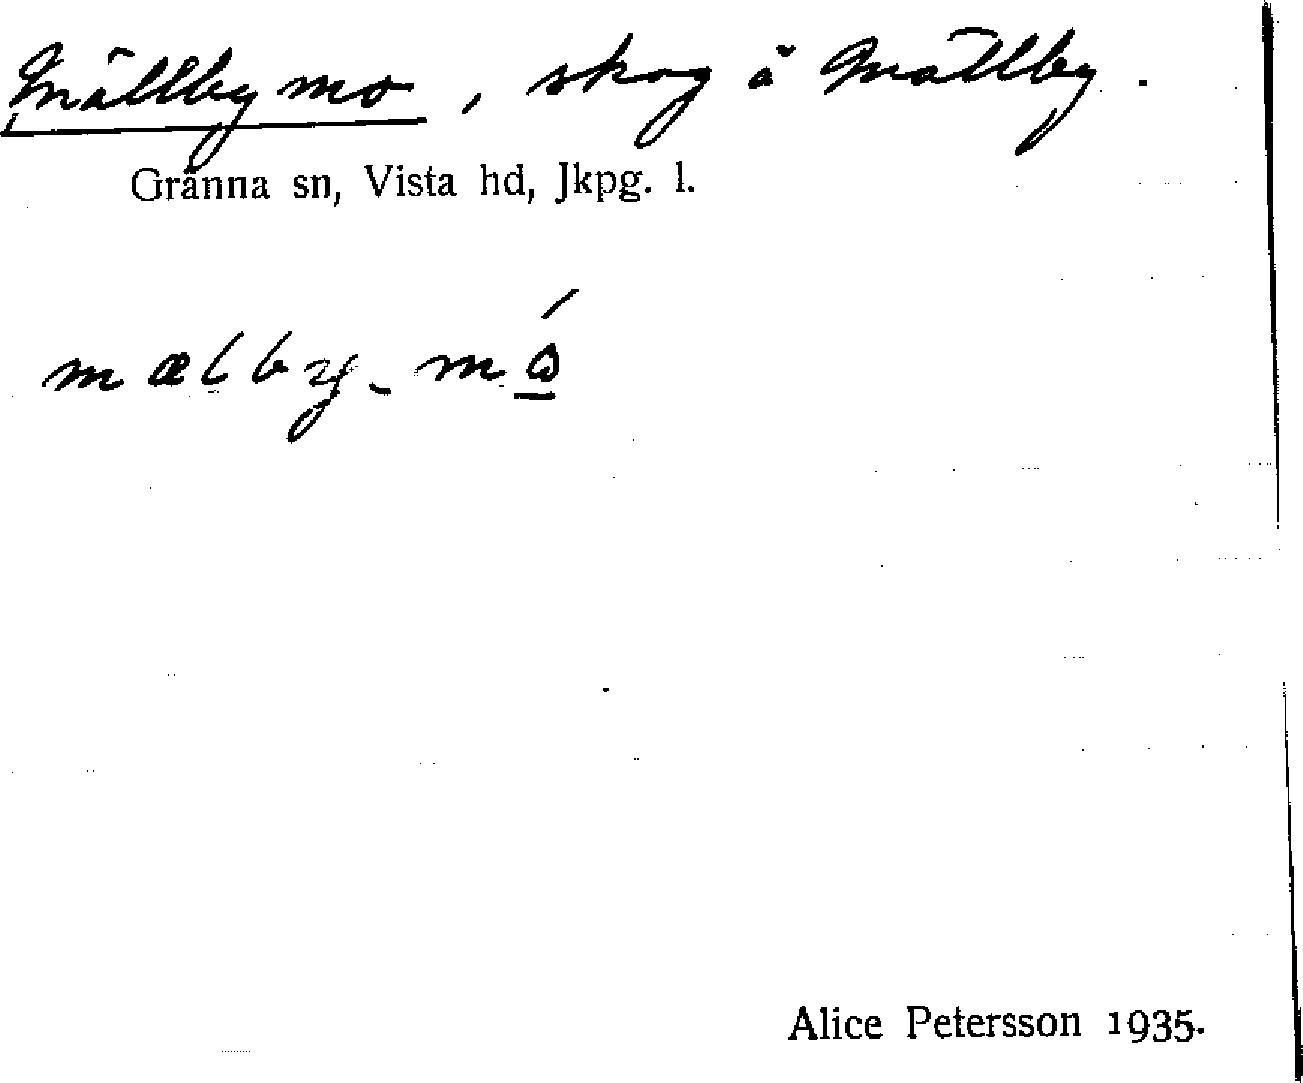 Mällbymo, skog å Mällby.
Gränna sn, Vista hd, Jkpg. l.
mælby-mó
Alice Petersson 1935.